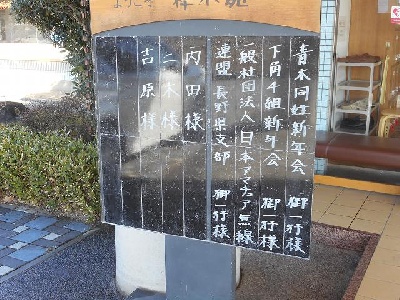 ようこそ
青木同姓新年会 御一行様
下角4組新年会 御一行様
一般社団法人 日本アマチュア無線
連盟 長野県支部 御一行様
内田様
二木様
吉原様